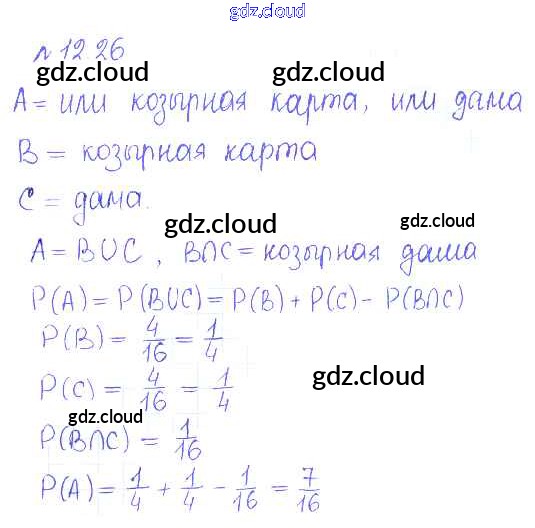 gdz.cloud
№12.26
gdz.cloud gdz.cloud
A = или козырная карта, или дама
B = козырная карта
C = дама.
gdz.cloud gdz.cloud
A = B∪C, B∩C = козырная дама
P(A) = P(B∪C) = P(B) + P(C) - P(B∩C)
P(B) = 4/16 = 1/4
P(C) = 4/16 = 1/4
gdz.cloud
gdz.cloud
P(B∩C) = 1/16
P(A) = 1/4 + 1/4 - 1/16 = 7/16